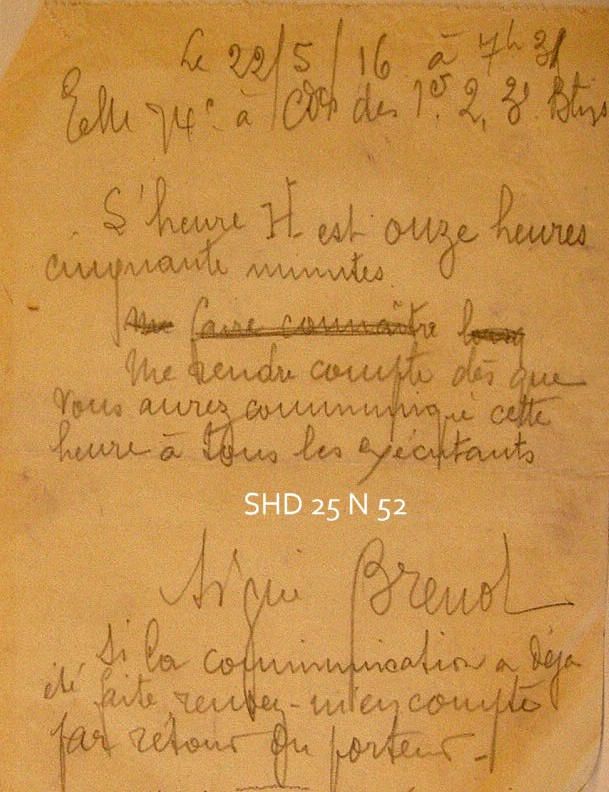 Le 22/5/16 à 7h 31
74e à Cdts des 1er, 2, 3e Btns
L'heure H est onze heures
cinquante minutes.
me faire connaître
Me rendre compte dès que
vous aurez communiqué cette
heure à tous les exécutants
SHD 25 N 52
Signé Brenot
Si la communication a déjà
été faite rendez-m'en compte
par retour du porteur.